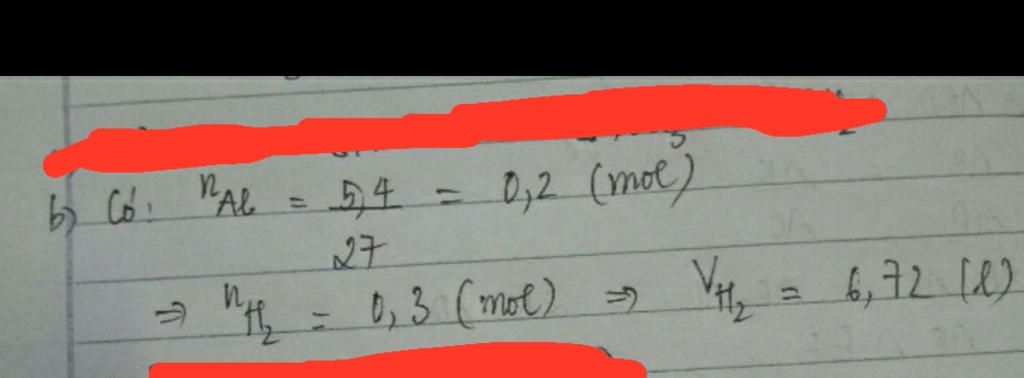 b) Có: nAl = 5,4/27 = 0,2 (mol)
⇒ nH₂ = 0,3 (mol) ⇒ VH₂ = 6,72 (l)